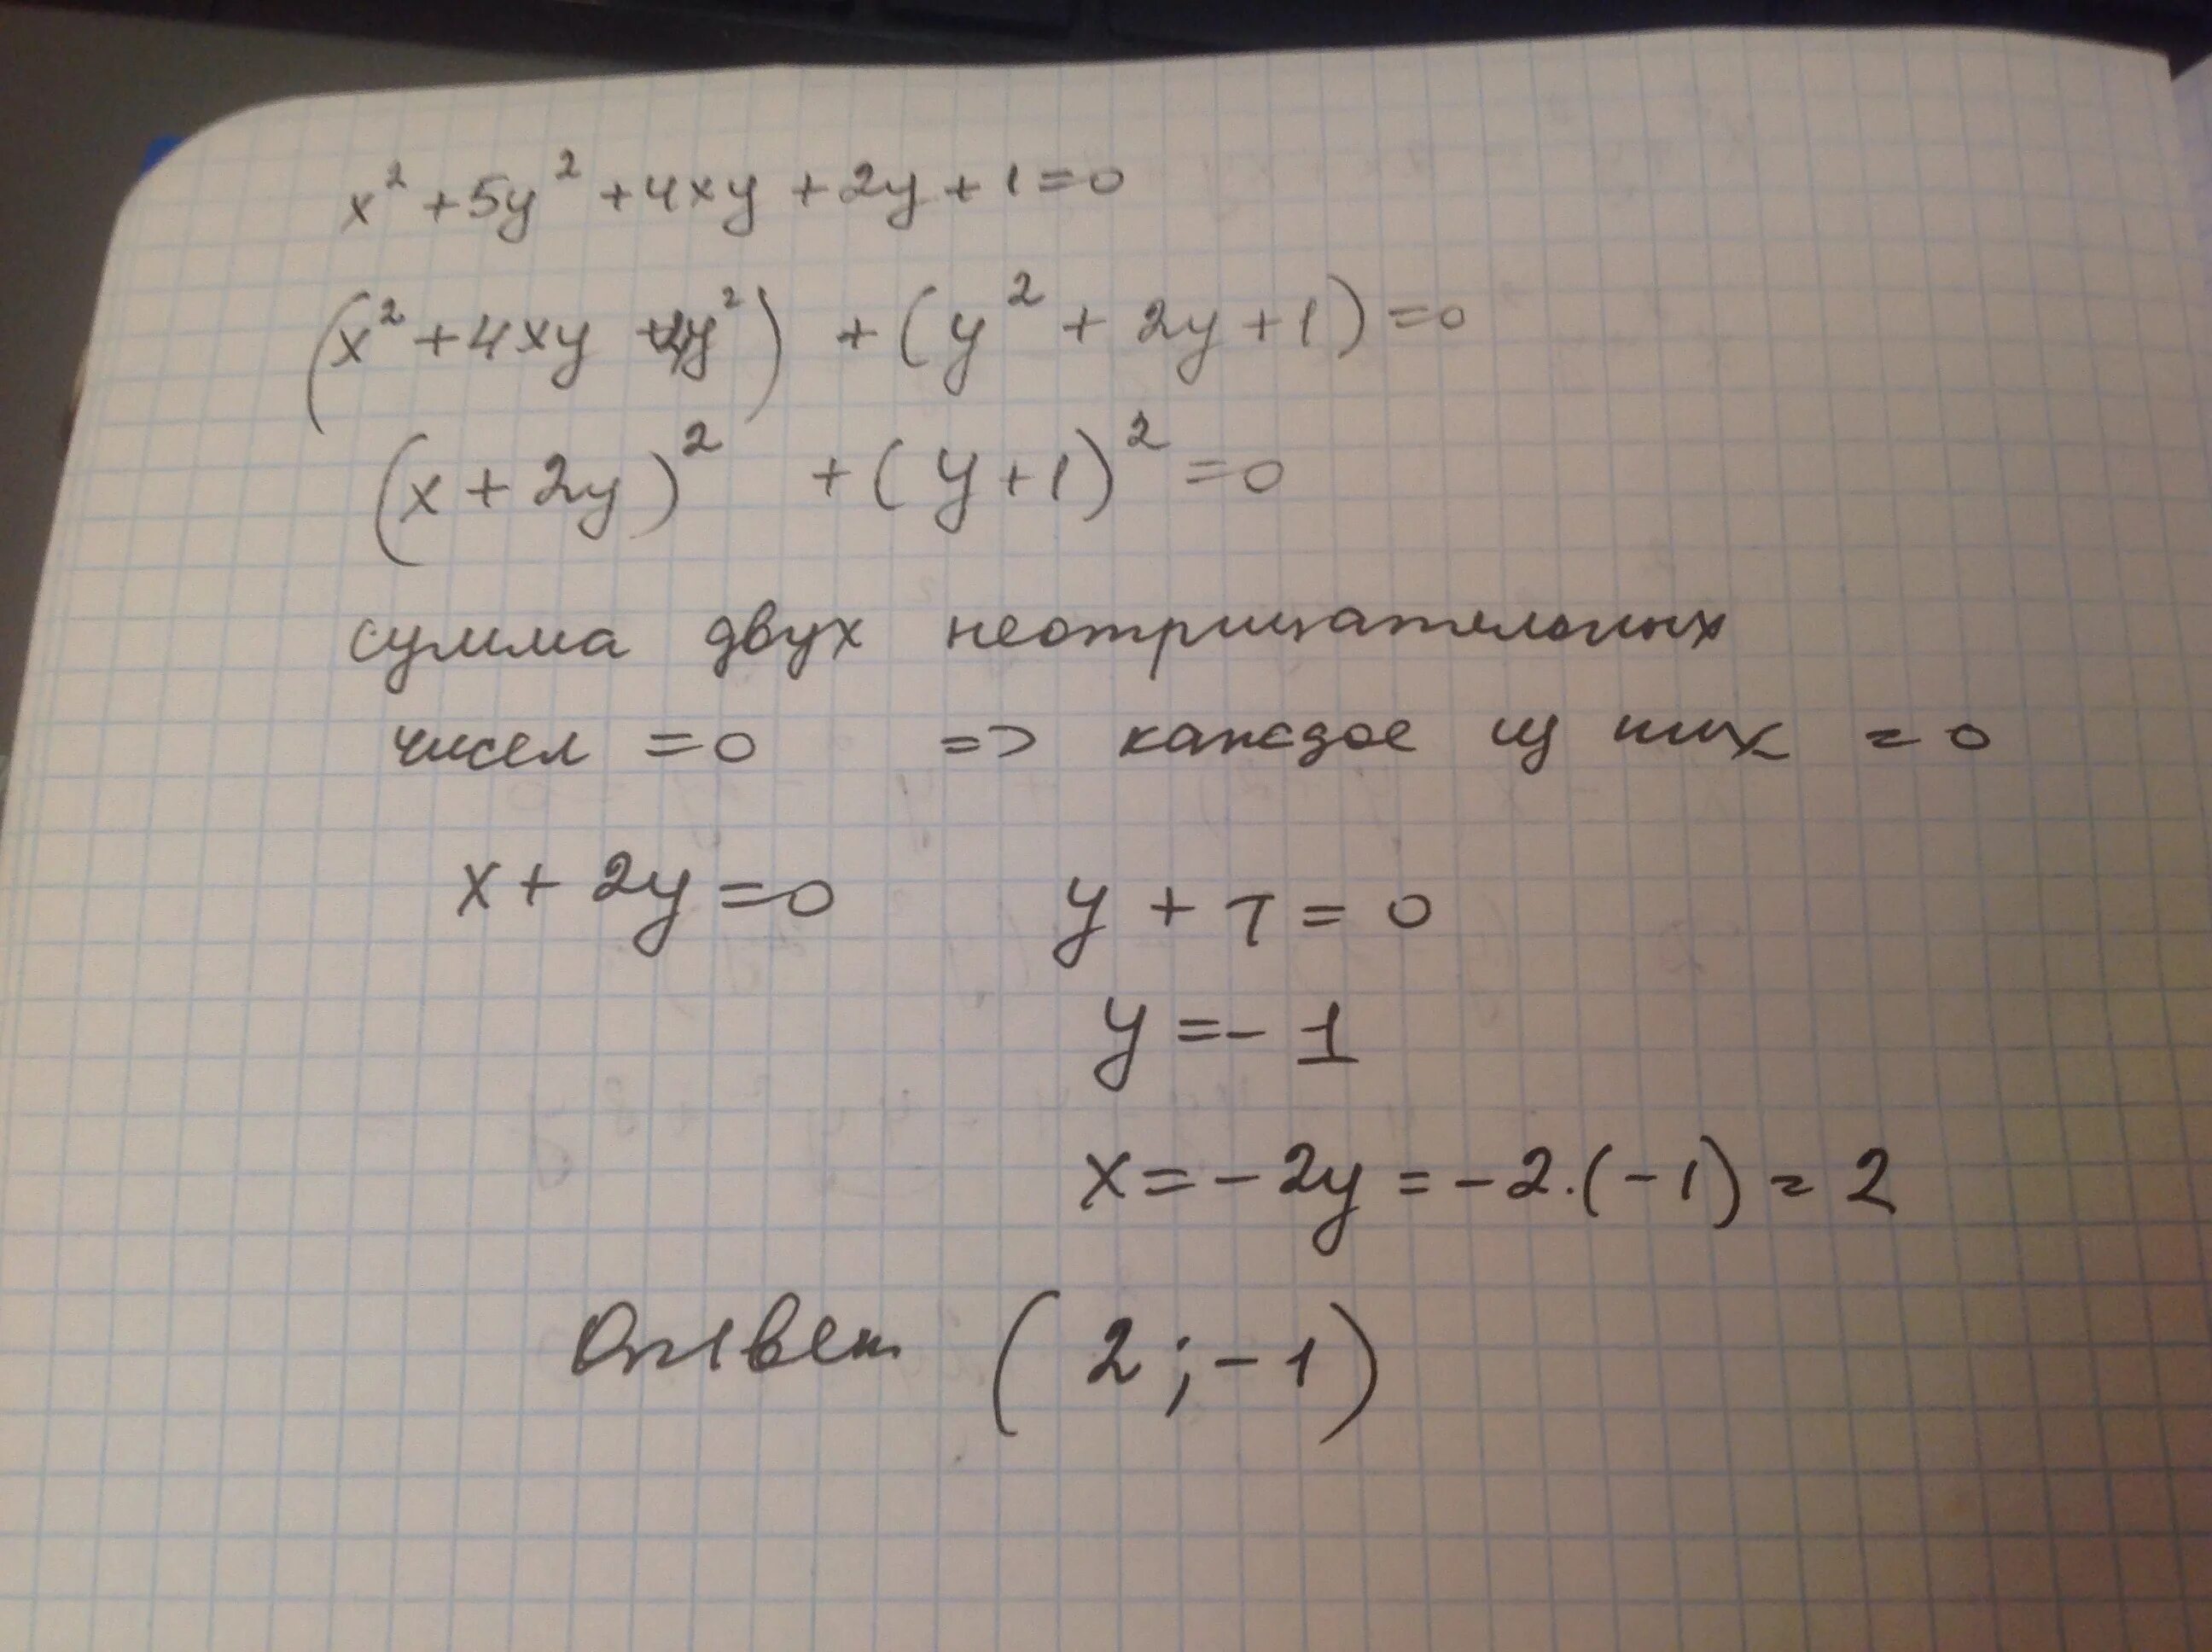 x² + 5y² + 4xy + 2y + 1 = 0
(x² + 4xy + 4y²) + (y² + 2y + 1) = 0
(x + 2y)² + (y + 1)² = 0
сумма двух неотрицательных
чисел = 0 => каждое из них = 0
x + 2y = 0 y + 1 = 0
y = - 1
x = - 2y = - 2 · (- 1) = 2
Ответ (2 ; - 1)